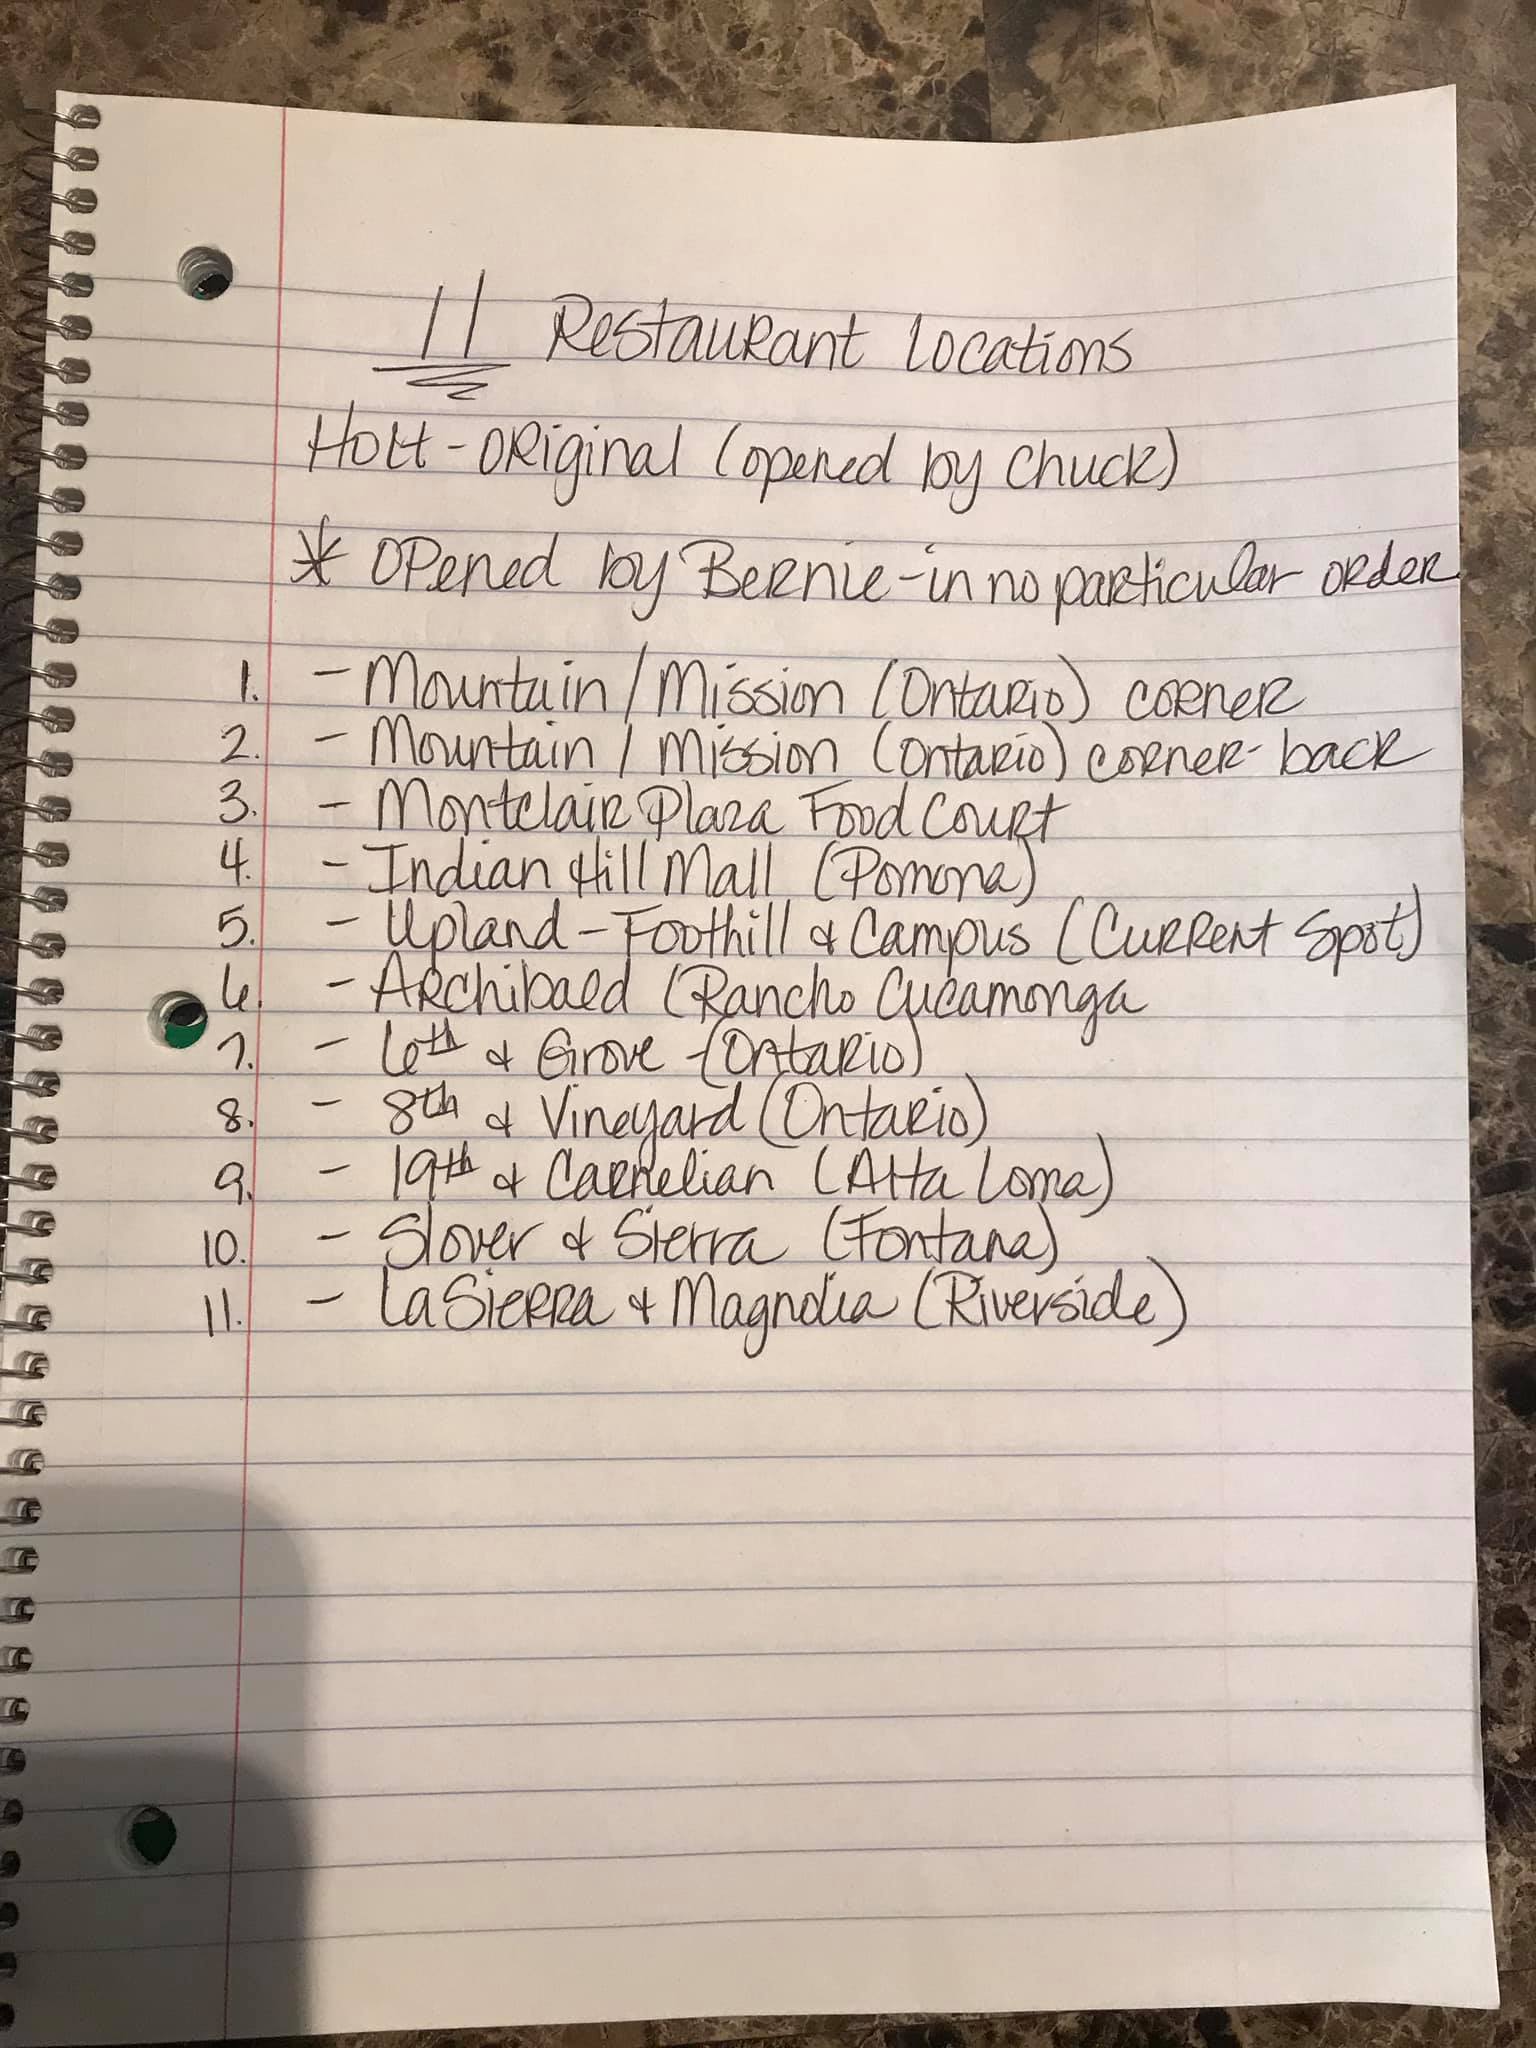 11 Restaurant Locations
Holt - Original (opened by Chuck)
* Opened by Bernie - in no particular order
1. - Mountain / Mission (Ontario) corner
2. - Mountain / Mission (Ontario) corner - back
3. - Montclair Plaza Food Court
4. - Indian Hill Mall (Pomona)
5. - Upland - Foothill & Campus (Current Spot)
6. - Archibald (Rancho Cucamonga
7. - 6th & Grove - (Ontario)
8. - 8th & Vineyard (Ontario)
9. - 19th & Carnelian (Alta Loma)
10. - Slover & Sierra (Fontana)
11. - La Sierra & Magnolia (Riverside)